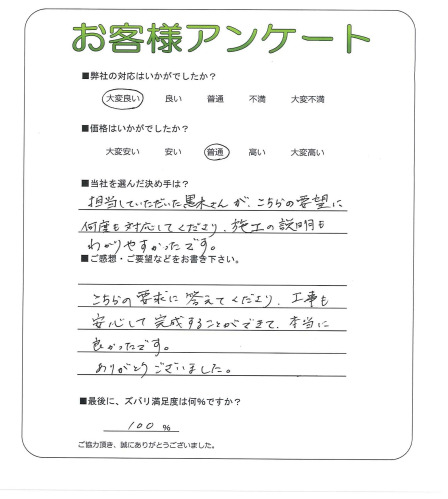 お客様アンケート
■弊社の対応はいかがでしたか?
大変良い 良い 普通 不満 大変不満
■価格はいかがでしたか?
大変安い 安い 普通 高い 大変高い
■当社を選んだ決め手は?
担当していただいた黒木さんが、こちらの要望に
何度も対応してくださり、施工の説明も
わかりやすかったです。
■ご感想・ご要望などをお書き下さい。
こちらの要求に答えてくださり、工事も
安心して完成することができて、本当に
良かったです。
ありがとうございました。
■最後に、ズバリ満足度は何%ですか?
100 %
ご協力頂き、誠にありがとうございました。